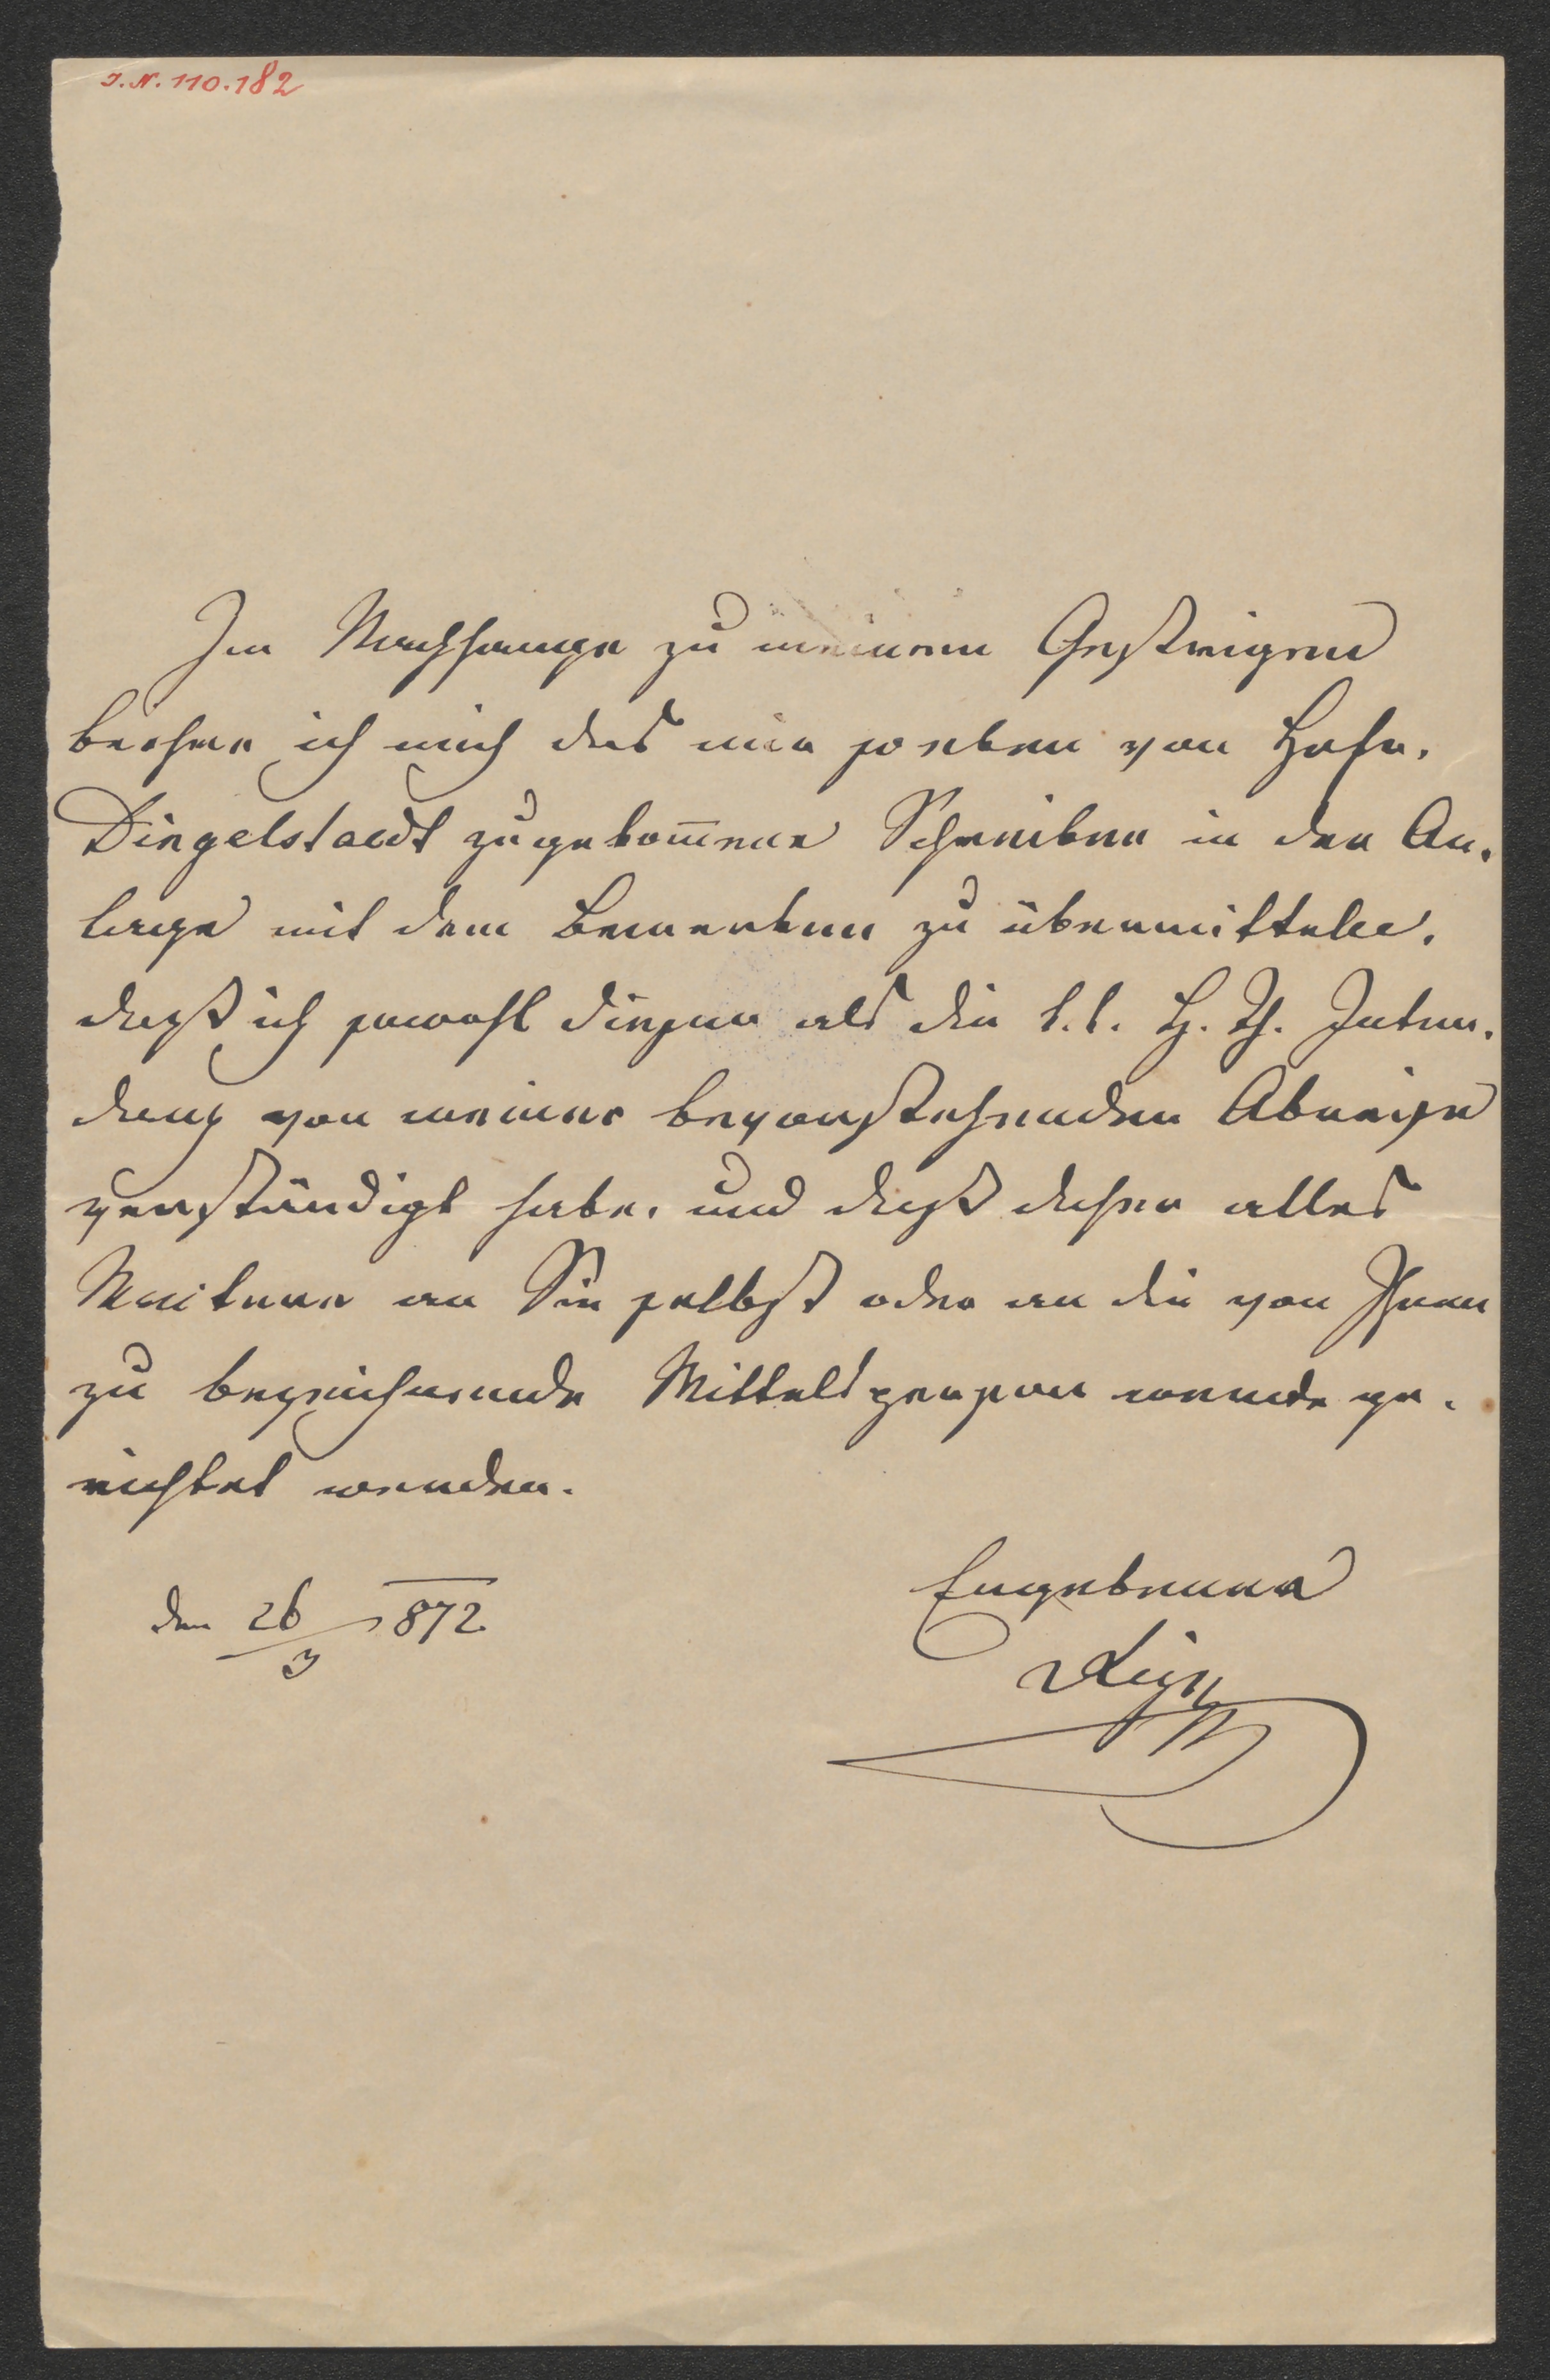 I.N. 110.182
Im Nachhange zu meinem Gestrigen
beehre ich mich das mir soeben von Hofr.
Dingelstaedt zugekom̅ene Schreiben in der An-
lage mit dem Bemerken zu übermitteln,
daß ich sowohl diesen als die k.k. H. Th. Inten-
danz von meiner bevorstehenden Abreise
verständigt habe, und daß daher alles
Weitere an Sie selbst oder an die von Ihnen
zu bezeichnende Mittelsperson werde ge-
richtet werden.
Ergebener
den 26/3 1872